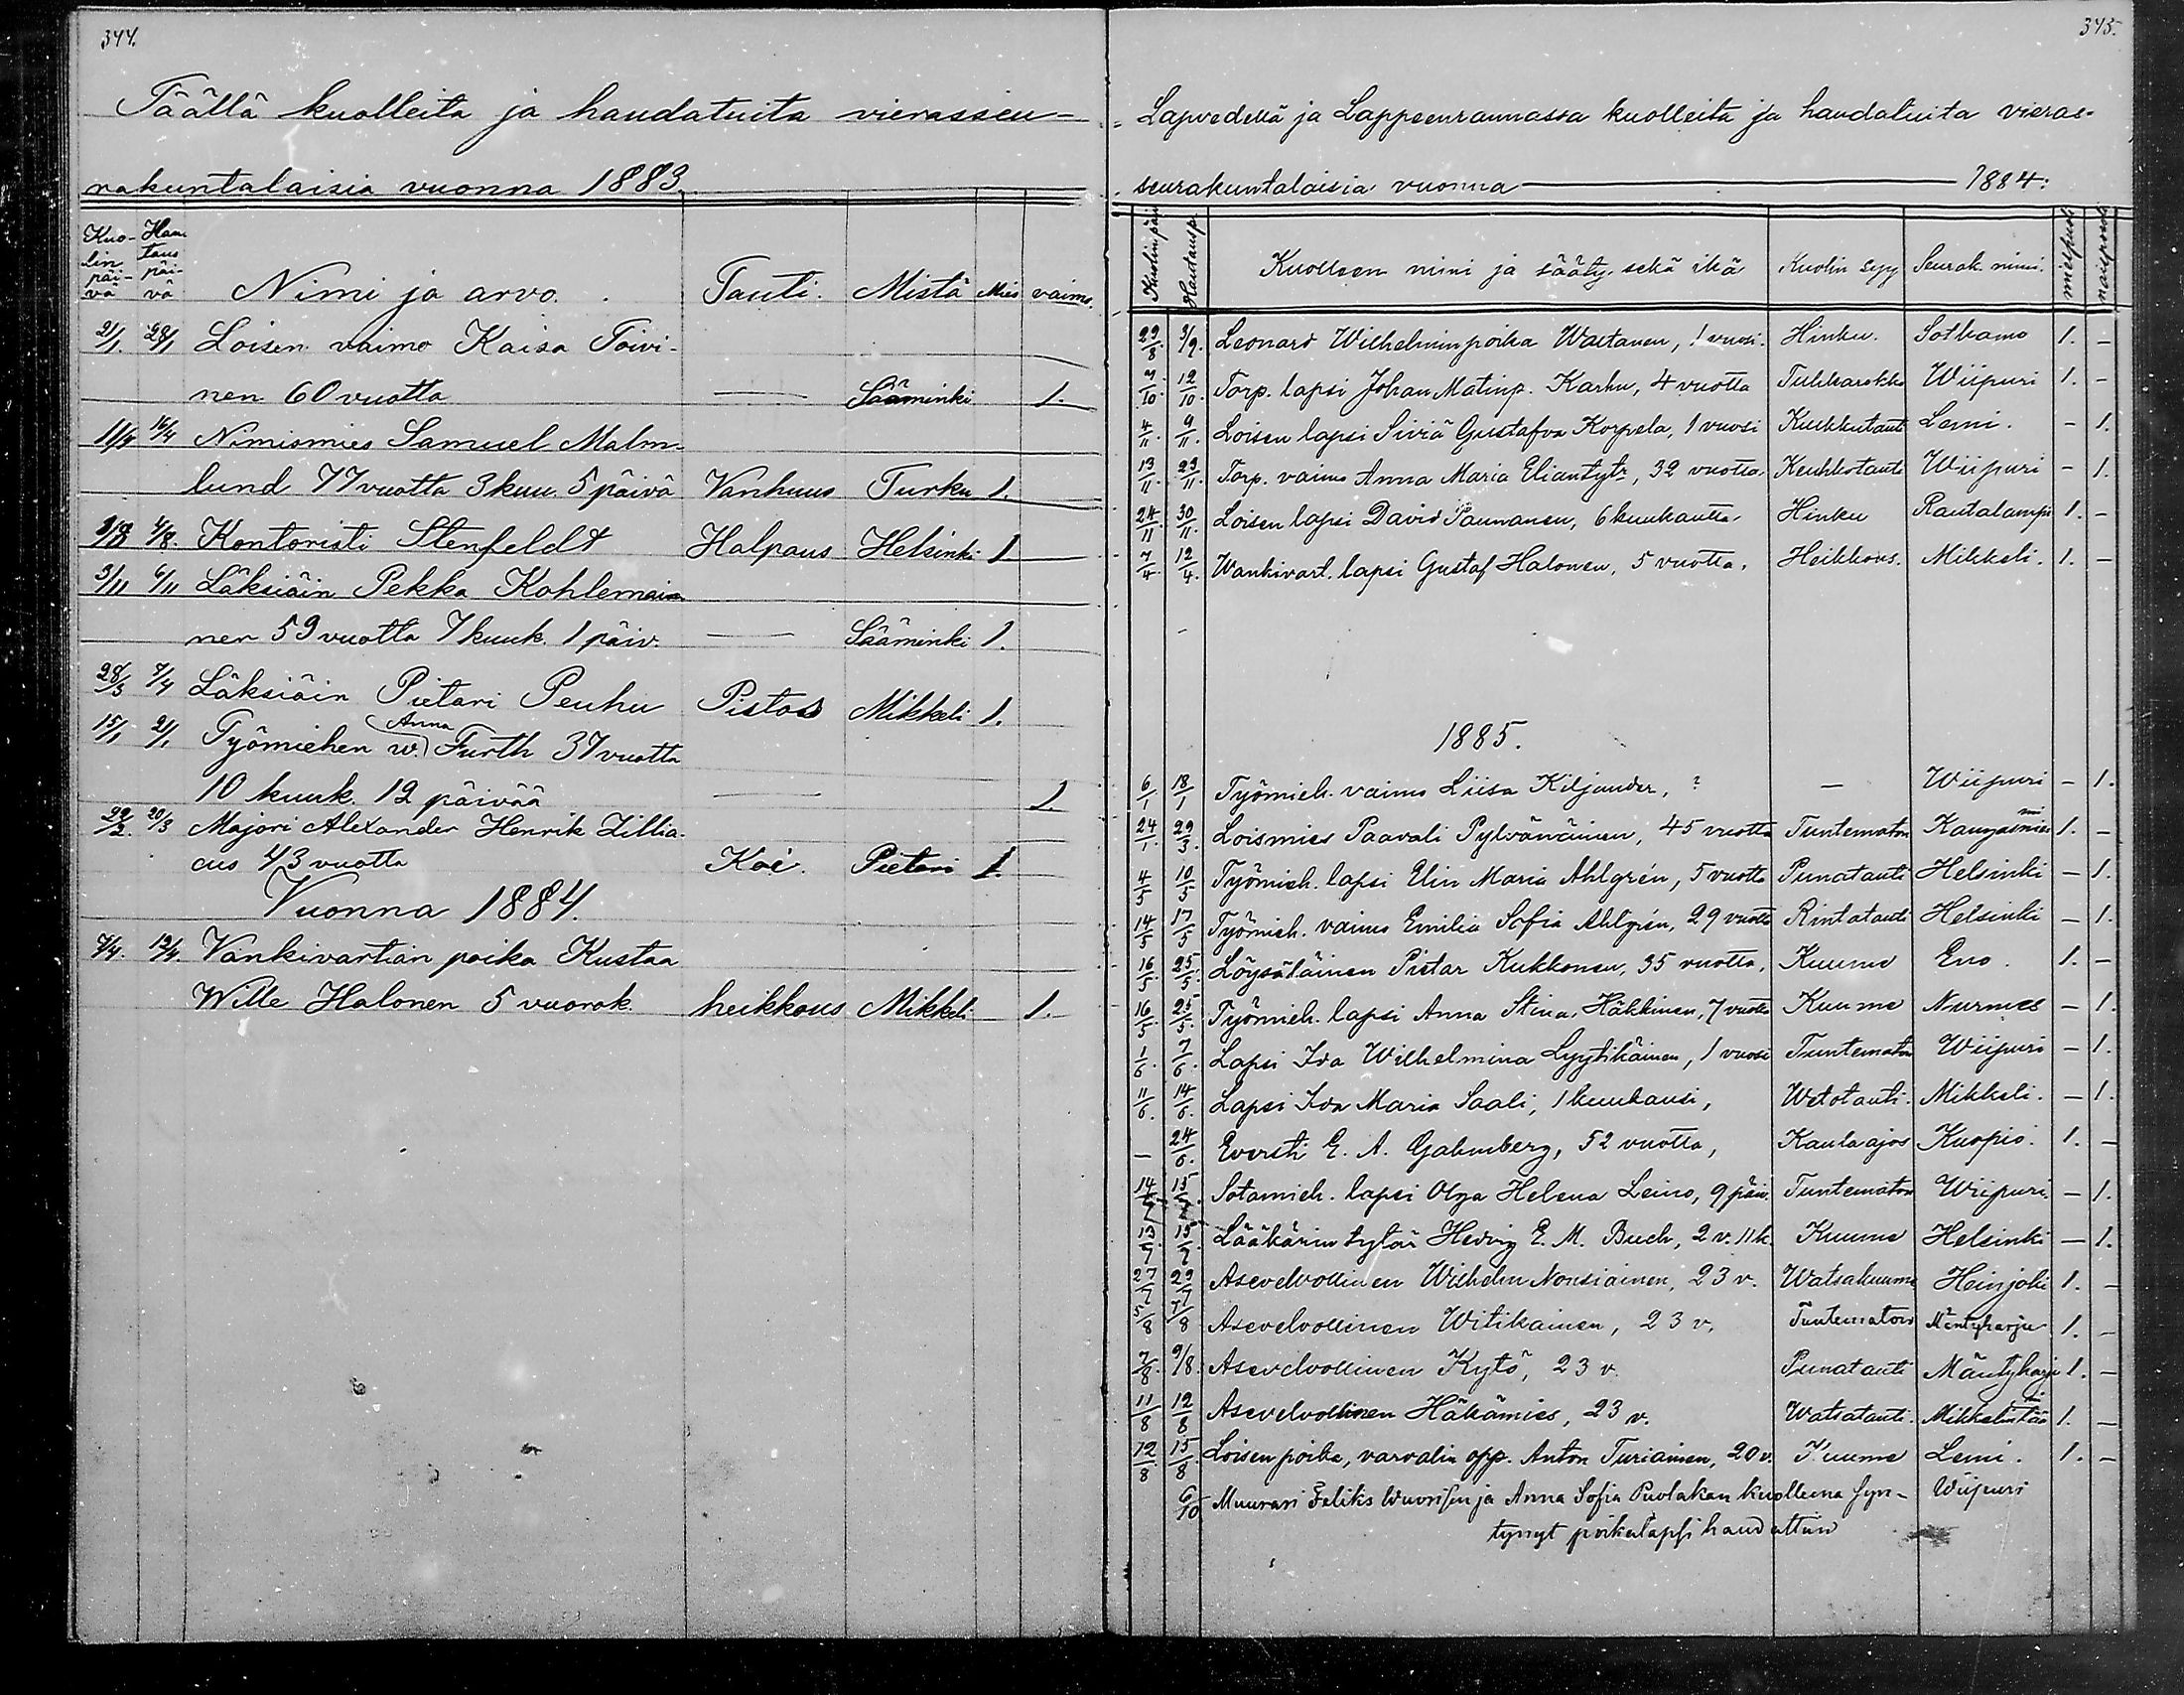 344.
Täällä kuolleita ja haudatuita vierasseu-
rakuntalaisia vuonna 1883.
Kuo-lin päi-vä Hau taus päi-vä Nimi ja arvo. Tauti. Mistä Mies vaimo.
21/1. 28/1 Loisen vaimo Kaisa Toivi-
nen 60 vuotta — Sääminki 1.
11/4 16/4 Nimismies Samuel Malm-
lund 77 vuotta 3 kuu. 5 päivä Vanhuus Turku 1.
4/8. Kontoristi Stenfeldt Halpaus Helsinki 1
3/11 6/11 Läksiäin Pekka Kohlemai
nen 59 vuotta 7 kuuk. 1 päiv. — Sääminki 1.
28/3 7/4 Läksiäin Pietari Peuhu Pistos Mikkeli 1.
15/1 21/1 Työmiehen w. Anna Furth 37 vuotta
10 kuuk. 12 päivää — 1.
22/2. 20/3 Majori Alexander Henrik Zillia-
cus 43 vuotta Koi. Pietari 1.
Vuonna 1884.
7/4. 12/4. Vankivartian poika Kustaa
Wille Halonen 5 vuorok. heikkous Mikkeli 1.
345.
Lapvedellä ja Lappeenrannassa kuolleita ja haudatuita vieras-
seurakuntalaisia vuonna — 1884:
Kuolinpäiv Hautausp. Kuolleen nimi ja sääty sekä ikä Kuolin syy Seurak. nimi. miespuoli naispuoli
29/8. 3/9. Leonard Wilhelminpoika Wartanen, 1 vuosi. Hinku. Sotkamo 1. -
7/10. 12/10. Torp. lapsi Johan Matinp. Karhu, 4 vuotta Tuhkarokko Wiipuri 1. -
4/11. 9/11. Loisen lapsi Siviä Gustafva Korpela, 1 vuosi Kuihkutauti Lemi. - 1.
13/11 23/11. Torp. vaimo Anna Maria Eliantytr, 32 vuotta. Keuhkotauti Wiipuri - 1.
24/11 30/11. Loisen lapsi David Paunanen, 6 kuukautta. Hinku Rautalampi 1. -
7/4. 12/4. Wankivart. lapsi Gustaf Halonen, 5 vuotta. Heikkous. Mikkeli. 1. -
1885.
6/1 18/1 Työmieh. vaimo Liisa Kiljander, ? — Wiipuri - 1.
24/1. 29/3. Loismies Paavali Pylvänäinen, 45 vuotta Tuntematon Kangasniemi 1. -
4/5 10/5 Työmieh. lapsi Elin Maria Ahlgrén, 5 vuotta Punatauti Helsinki - 1.
14/5 17/5 Työmieh. vaimo Emilia Sofia Ahlgrén, 29 vuotta Rintatauti Helsinki - 1.
16/5. 25/5. Löysäläinen Pietar Kukkonen, 35 vuotta. Kuume Eno. 1. -
16/5. 25/5. Työmieh. lapsi Anna Stina Häkkinen, 7 vuotta Kuume Nurmes - 1.
1/6. 7/6. Lapsi Ida Wilhelmina Lyytikäinen, 1 vuosi Tuntematon Wiipuri - 1.
11/6. 14/6. Lapsi Ida Maria Saali, 1 kuukausi, Wetotauti. Mikkeli. - 1.
— 24/6. Eversti E. A. Gahmberg, 52 vuotta, Kaulaajos Kuopio. 1. -
14/7 15/7 Sotamieh. lapsi Olga Helena Leino, 9 päiv. Tuntematon Wiipuri. - 1.
13/7. 15/7. Lääkärin tytär Hedvig E. M. Buch, 2 v. 11 k. Kuume Helsinki - 1.
27/7 29/7 Asevelvollinen Wilhelm Nousiainen, 23 v. Watsakuume Heinjoki 1. -
5/8 7/8 Asevelvollinen Witikainen, 23 v. Tuntematon Mäntyharju 1. -
7/8. 9/8. Asevelvollinen Kytö, 23 v. Punatauti Mäntyharju 1. -
11/8 12/8 Asevelvollinen Häkämies, 23 v. Watsatauti. 1. -
12/8 15/8 Loisen poika, varvalin opp. Anton Turiainen, 20 v. Kuume Lemi. 1. -
6/10 Muurari Feliks Wuorisen ja Anna Sofia Puolakan kuolleena syn- Wiipuri
tynyt poikalapsi haudattiin